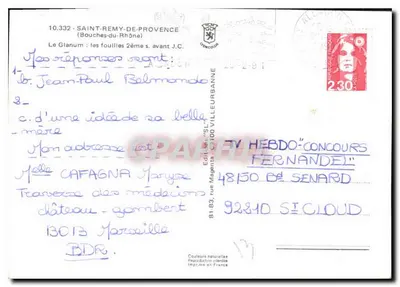 10.332 - SAINT-REMY-DE-PROVENCE
(Bouches-du-Rhône)
Le Glanum : les fouilles 2ème s. avant J.C.
Mes réponses sont
1- b. Jean Paul Belmondo
2-
c. d'une idée de sa belle
mère
Mon adresse est
Melle CAFAGNA Maryse
Traverse des médecins
château-gombert
13013 Marseille
BDR.
VILLEURBANNE
2,30
TV HEBDO-"CONCOURS
FERNANDEL"
48/50 Bd SENARD
92210 St CLOUD
Couleurs naturelles
Reproduction interdite
Imprimé en France